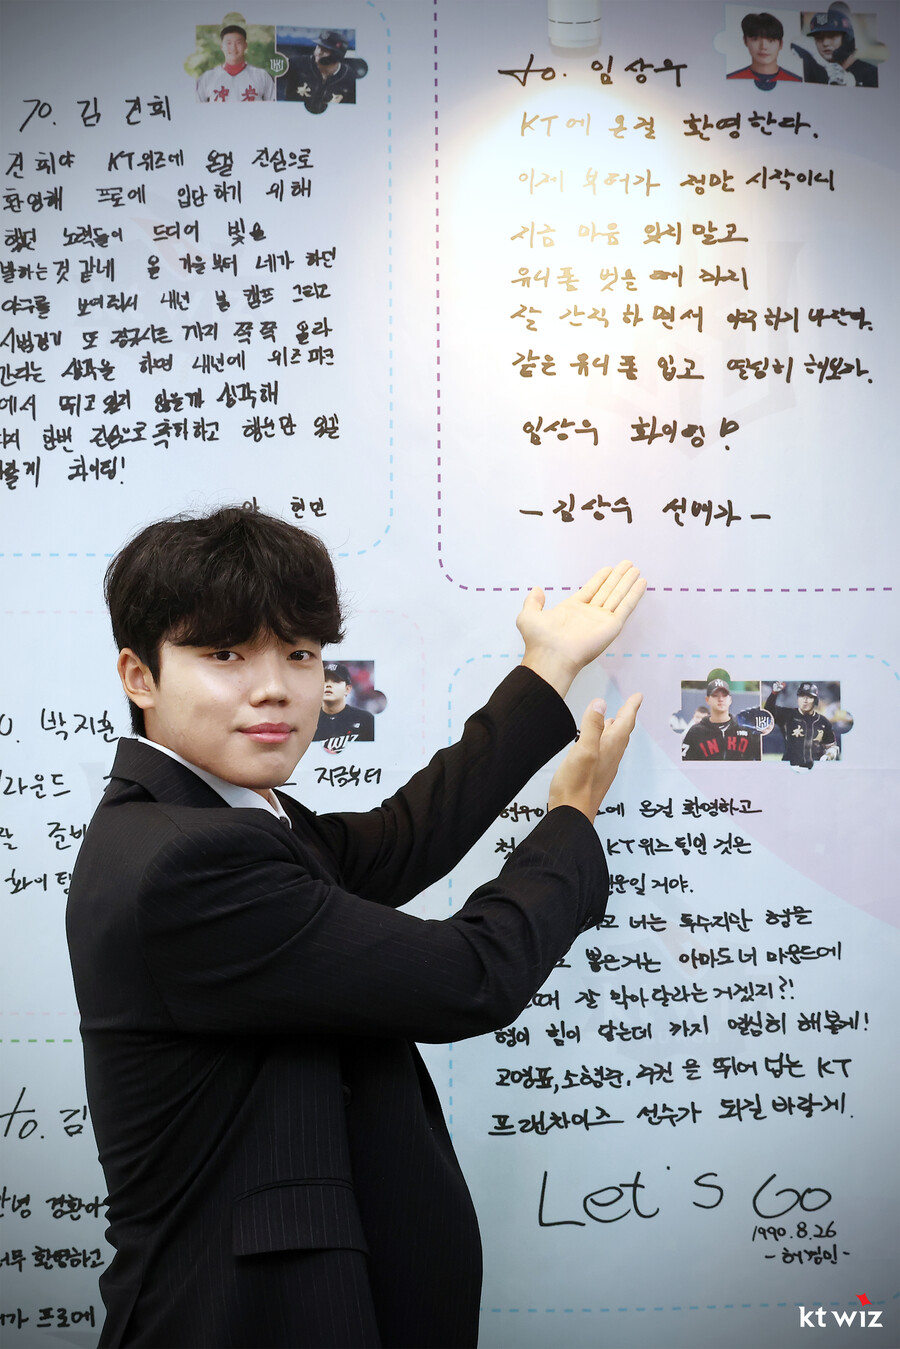 TO. 김 건희
건희야 KT위즈에 온걸 진심으로
환영해 프로에 입단하기 위해
했던 노력들이 드디어 빛을
발하는것 같네 올 가을부터 네가 하던
야구를 보여줘서 내년 봄 캠프 그리고
시범경기 또 정규시즌 까지 쭉쭉 올라
간다는 생각을 하면 내년에 위즈파크
에서 뛰고 있지 않을까 생각해
다시 한번 진심으로 축하하고 행운만 있길
바랄게 화이팅!
현민
to. 임상우
KT에 온걸 환영한다.
이제 부터가 정말 시작이니
지금 마음 잊지 말고
유니폼 벗을 때 까지
잘 간직 하면서 야구 하기 바란다.
같은 유니폼 입고 열심히 해보자.
임상우 화이팅!
- 김상수 선배가 -
박지훈
라운드
지금부터
준비
화이팅
에 온걸 환영하고
KT위즈 팀인 것은
일거야.
너는 투수지만 형을
뽑은거는 아마도 너 마운드에
때 잘 막아달라는거겠지?!
형이 힘이 닿는데 까지 열심히 해볼게!
고영표,소형준, 주권 을 뛰어 넘는 KT
프랜차이즈 선수가 되길 바랄게.
Let's Go
1990.8.26
- 허경민 -
to. 김
경환아
환영하고
프로에
kt wiz